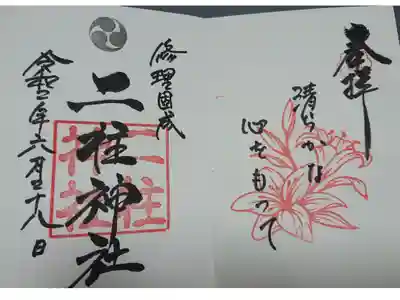 奉拝
清らかな
心をもって
修理固成
二柱神社
二柱
神社
令和二年六月二十九日